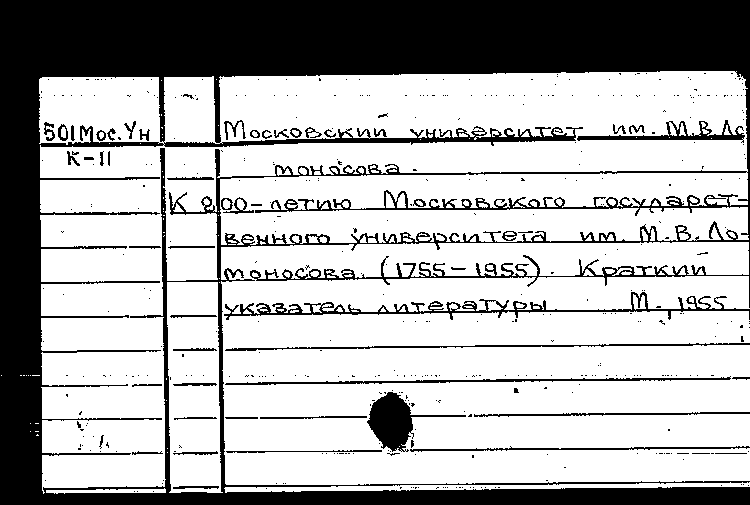 501Мос.Ун Московский университет им. М.В.Ло
К-11 моносова.
К 200-летию Московского государст-
венного университета им. М.В.Ло-
моносова. (1755-1955). Краткий
указатель литературы М., 1955